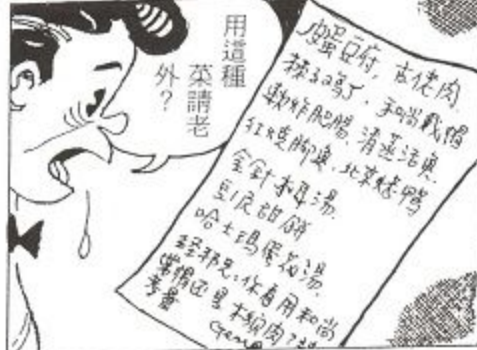 用這種
菜請老
外？
皮蛋豆付，古佬肉
辣子鸡丁，和尚戴帽
軟炸肥腸，清蒸活魚
紅燒腳魚，北京烤鴨
金針木耳湯
豆泥甜餅
哈士瑪蛋花湯
经邦兄，你看用和尚
戴帽还是木须肉？
考量